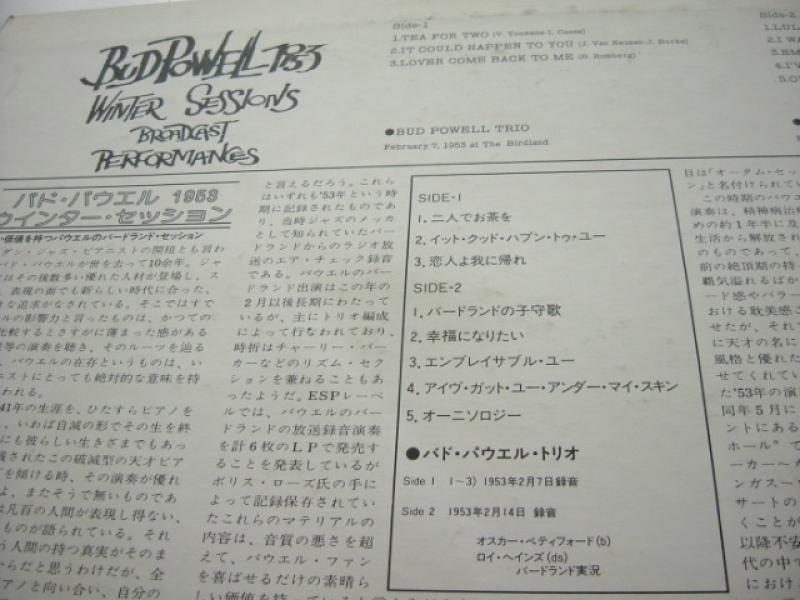 BUD POWELL 1953
WINTER SESSIONS
BROADCAST
PERFORMANCES
Side-1
1.TEA FOR TWO (V. Youmans-I. Caesar)
2.IT COULD HAPPEN TO YOU (J. Van Heusen-J. Burke)
3.LOVER COME BACK TO ME (S. Romberg)
●BUD POWELL TRIO
February 7, 1953 at The Birdland
Side-2
1.LUL
2.I WA
3.EM
4.I'V
5.O
バド・パウエル 1953
ウインター・セッション
価値を持つパウエルのバードランド・セッション
ダン・ジャズ・ピアニストの開祖とも言わ
バド・パウエルが世を去って10余年。ジャ
はその後数多い優れた人材が登場し、ス
、表現の面でも新しい時代に合った、
な追求がなされている。そこではすで
ルの影響力と言ったものは、かつての
比較するとさすがに薄まった感がある
等の演奏を聴き、そのルーツを辿る
、パウエルの在存というものは、い
ニストにとっても絶対的な意味を持
われる。
41年の生涯を、ひたすらピアノを
、いわば自滅の形でその生を終
にも彼らしい生きざまでもあっ
されたこの破滅型の天才ピア
を傾ける時、その演奏が優れ
よ、またそうで無いものであ
は凡百の人間が表現し得ない、
ものが語られている。それ
う人間の持つ真実がそのま
らだと思うわけだが、全
アノと向い合い、自分の
と言えるだろう。これら
はいずれも'53年という時
期に記録されたものであ
り、当時ジャズのメッカ
として知られていたバー
ドランドからのラジオ放
送のエア・チェック録音
である。パウエルのバー
ドランド出演はこの年の
2月以後長期にわたって
いるが、主にトリオ編成
によって行なわれており、
時折はチャーリー・パー
カーなどのリズム・セク
ションを兼ねることもあ
ったようだ。ESPレーベ
ルでは、パウエルのバー
ドランドの放送録音演奏
を計6枚のLPで発売す
ることを発表しているが
ボリス・ローズ氏の手に
よって記録保存されてい
たこれらのマテリアルの
内容は、音質の悪さを超
えて、パウエル・ファン
を喜ばせるだけの素晴ら
しい価値を持っている
SIDE-1
1. 二人でお茶を
2. イット・クッド・ハプン・トゥ・ユー
3. 恋人よ我に帰れ
SIDE-2
1. バードランドの子守歌
2. 幸福になりたい
3. エンブレイサブル・ユー
4. アイヴ・ガット・ユー・アンダー・マイ・スキン
5. オーニソロジー
●バド・パウエル・トリオ
Side 1 1〜3) 1953年2月7日録音
Side 2 1953年2月14日 録音
オスカー・ペティフォード(b)
ロイ・ヘインズ(ds)
バードランド実況
日は「オータム・セッ
ン」と名付けられてい
この時期のパウ
演奏は、精神病治
めの約1年半に及
生活から解放され
のものであって、
前の絶頂期の持
覇気溢れるばか
ード感やバラー
おける耽美感こ
せたが、それ
に天才の名に
風格と優れた
せてくれてい
た'53年の演
同年5月に
ントにある
ホール"で
ーカー〜ガ
ンガス〜
サートの
くことが
以降不安
代の中で
におけ